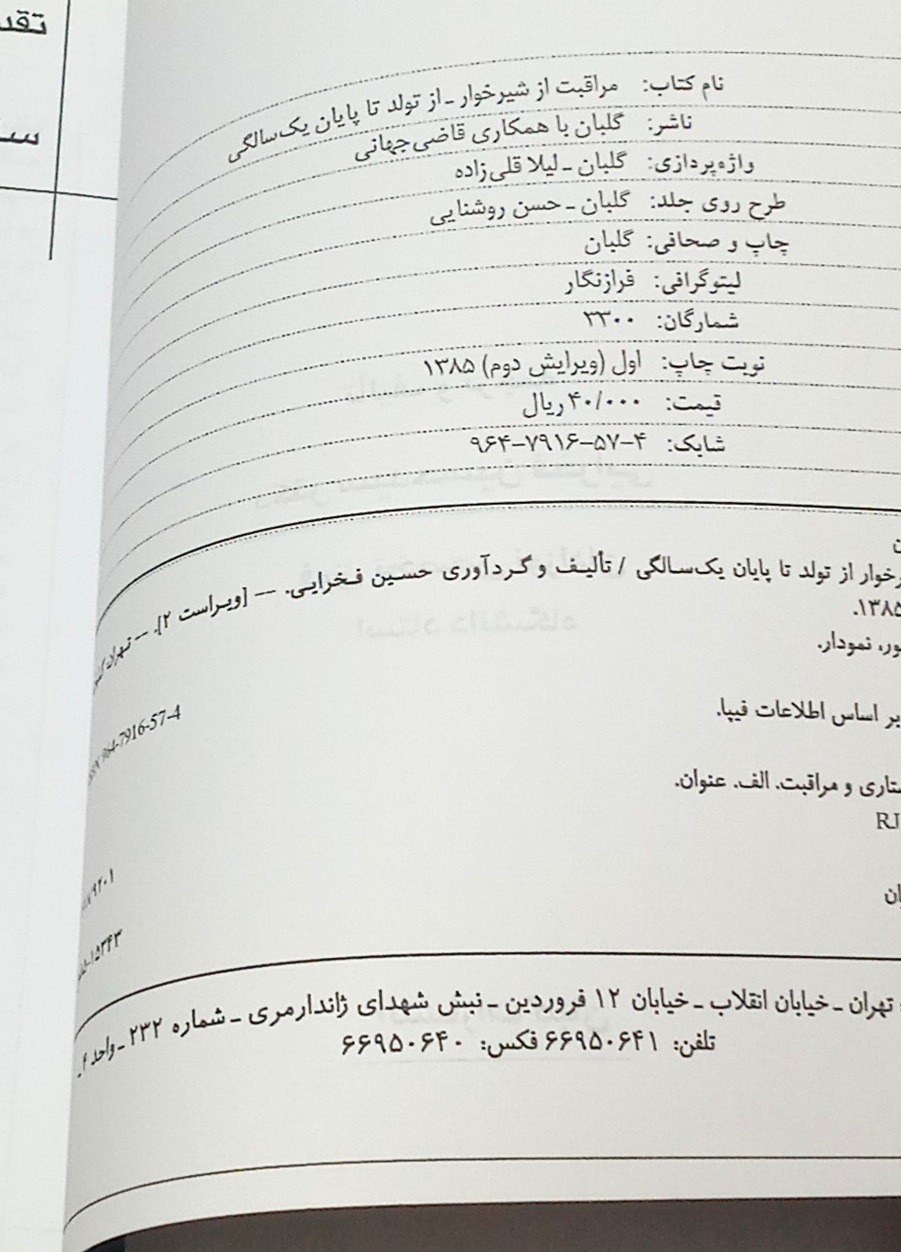 نام کتاب: مراقبت از شیرخوار ـ از تولد تا پایان یک‌سالگی
ناشر: گلبان با همکاری قاضی‌جهانی
واژه‌پردازی: گلبان ـ لیلا قلی‌زاده
طرح روی جلد: گلبان ـ حسن روشنایی
چاپ و صحافی: گلبان
لیتوگرافی: فرازنگار
شمارگان: ۳۳۰۰
نوبت چاپ: اول (ویرایش دوم) ۱۳۸۵
قیمت: ۴۰/۰۰۰ ریال
شابک: ۹۶۴-۷۹۱۶-۵۷-۴
از تولد تا پایان یک‌سالگی / تألیف و گردآوری حسین فخرایی. -- [ویراست ۲]. -- تهران
۱۳۸۵.
نمودار.
964-7916-57-4
بر اساس اطلاعات فیپا.
و مراقبت. الف. عنوان.
RJ
تهران ـ خیابان انقلاب ـ خیابان ۱۲ فروردین ـ نبش شهدای ژاندارمری ـ شماره ۲۳۲ ـ واحد ۴ـ
تلفن: ۶۶۹۵۰۶۴۱ فکس: ۶۶۹۵۰۶۴۰